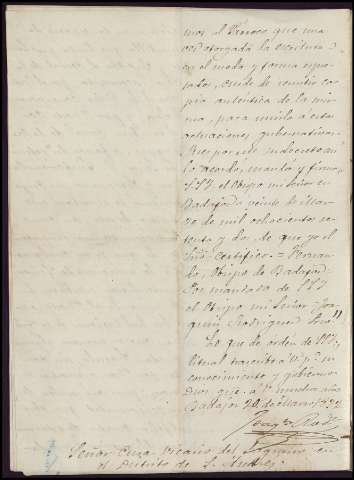 mos al Párroco que una
vez otorgada la escritura
en el modo y forma espre-
sados, cuide de remitir co-
pia autentica de la mis-
ma, para unirla a estas
actuaciones gubernativas.
Pues por este su decreto así
lo acordó, mandó y firma
S.S.I. el Obispo mi Señor en
Badajoz a veinte de Mar-
zo de mil ochocientos se-
tenta y dos, de que yo el
Srio certifico = Fernan-
do, Obispo de Badajoz =
Por mandado de S.S.I.
el Obispo mi Señor = Joa-
quin Rodriguez, Srio"
Lo que de orden de S.S.I.
literal trascribo a V. pª su
conocimiento y gobierno
Dios gue. a V. muchos años
Badajoz 20 de Marzo
Joaqn Rodz
Señor Cura Vicario del Sagrario en
el Distrito de S. Andres.